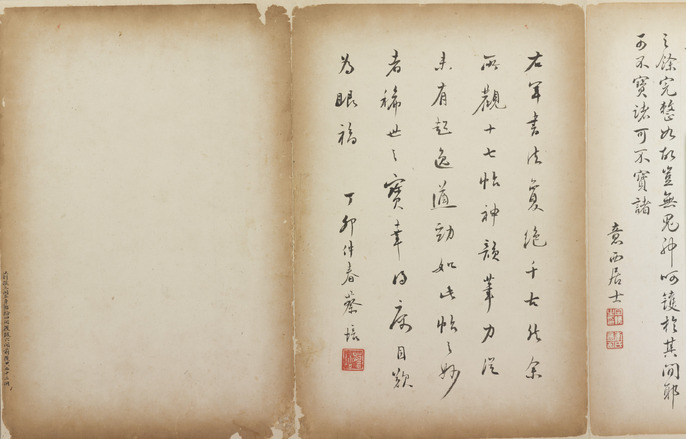 之餘完整如故豈無鬼神呵護於其間耶
可不寶諸可不寶諸
意西居士
右軍書法夐絕千古然余
所觀十七帖神韻筆力從
未有超逸遒勁如此帖之妙
者稀世之寶幸得寓目歎
為眼福
丁卯仲春蔡培